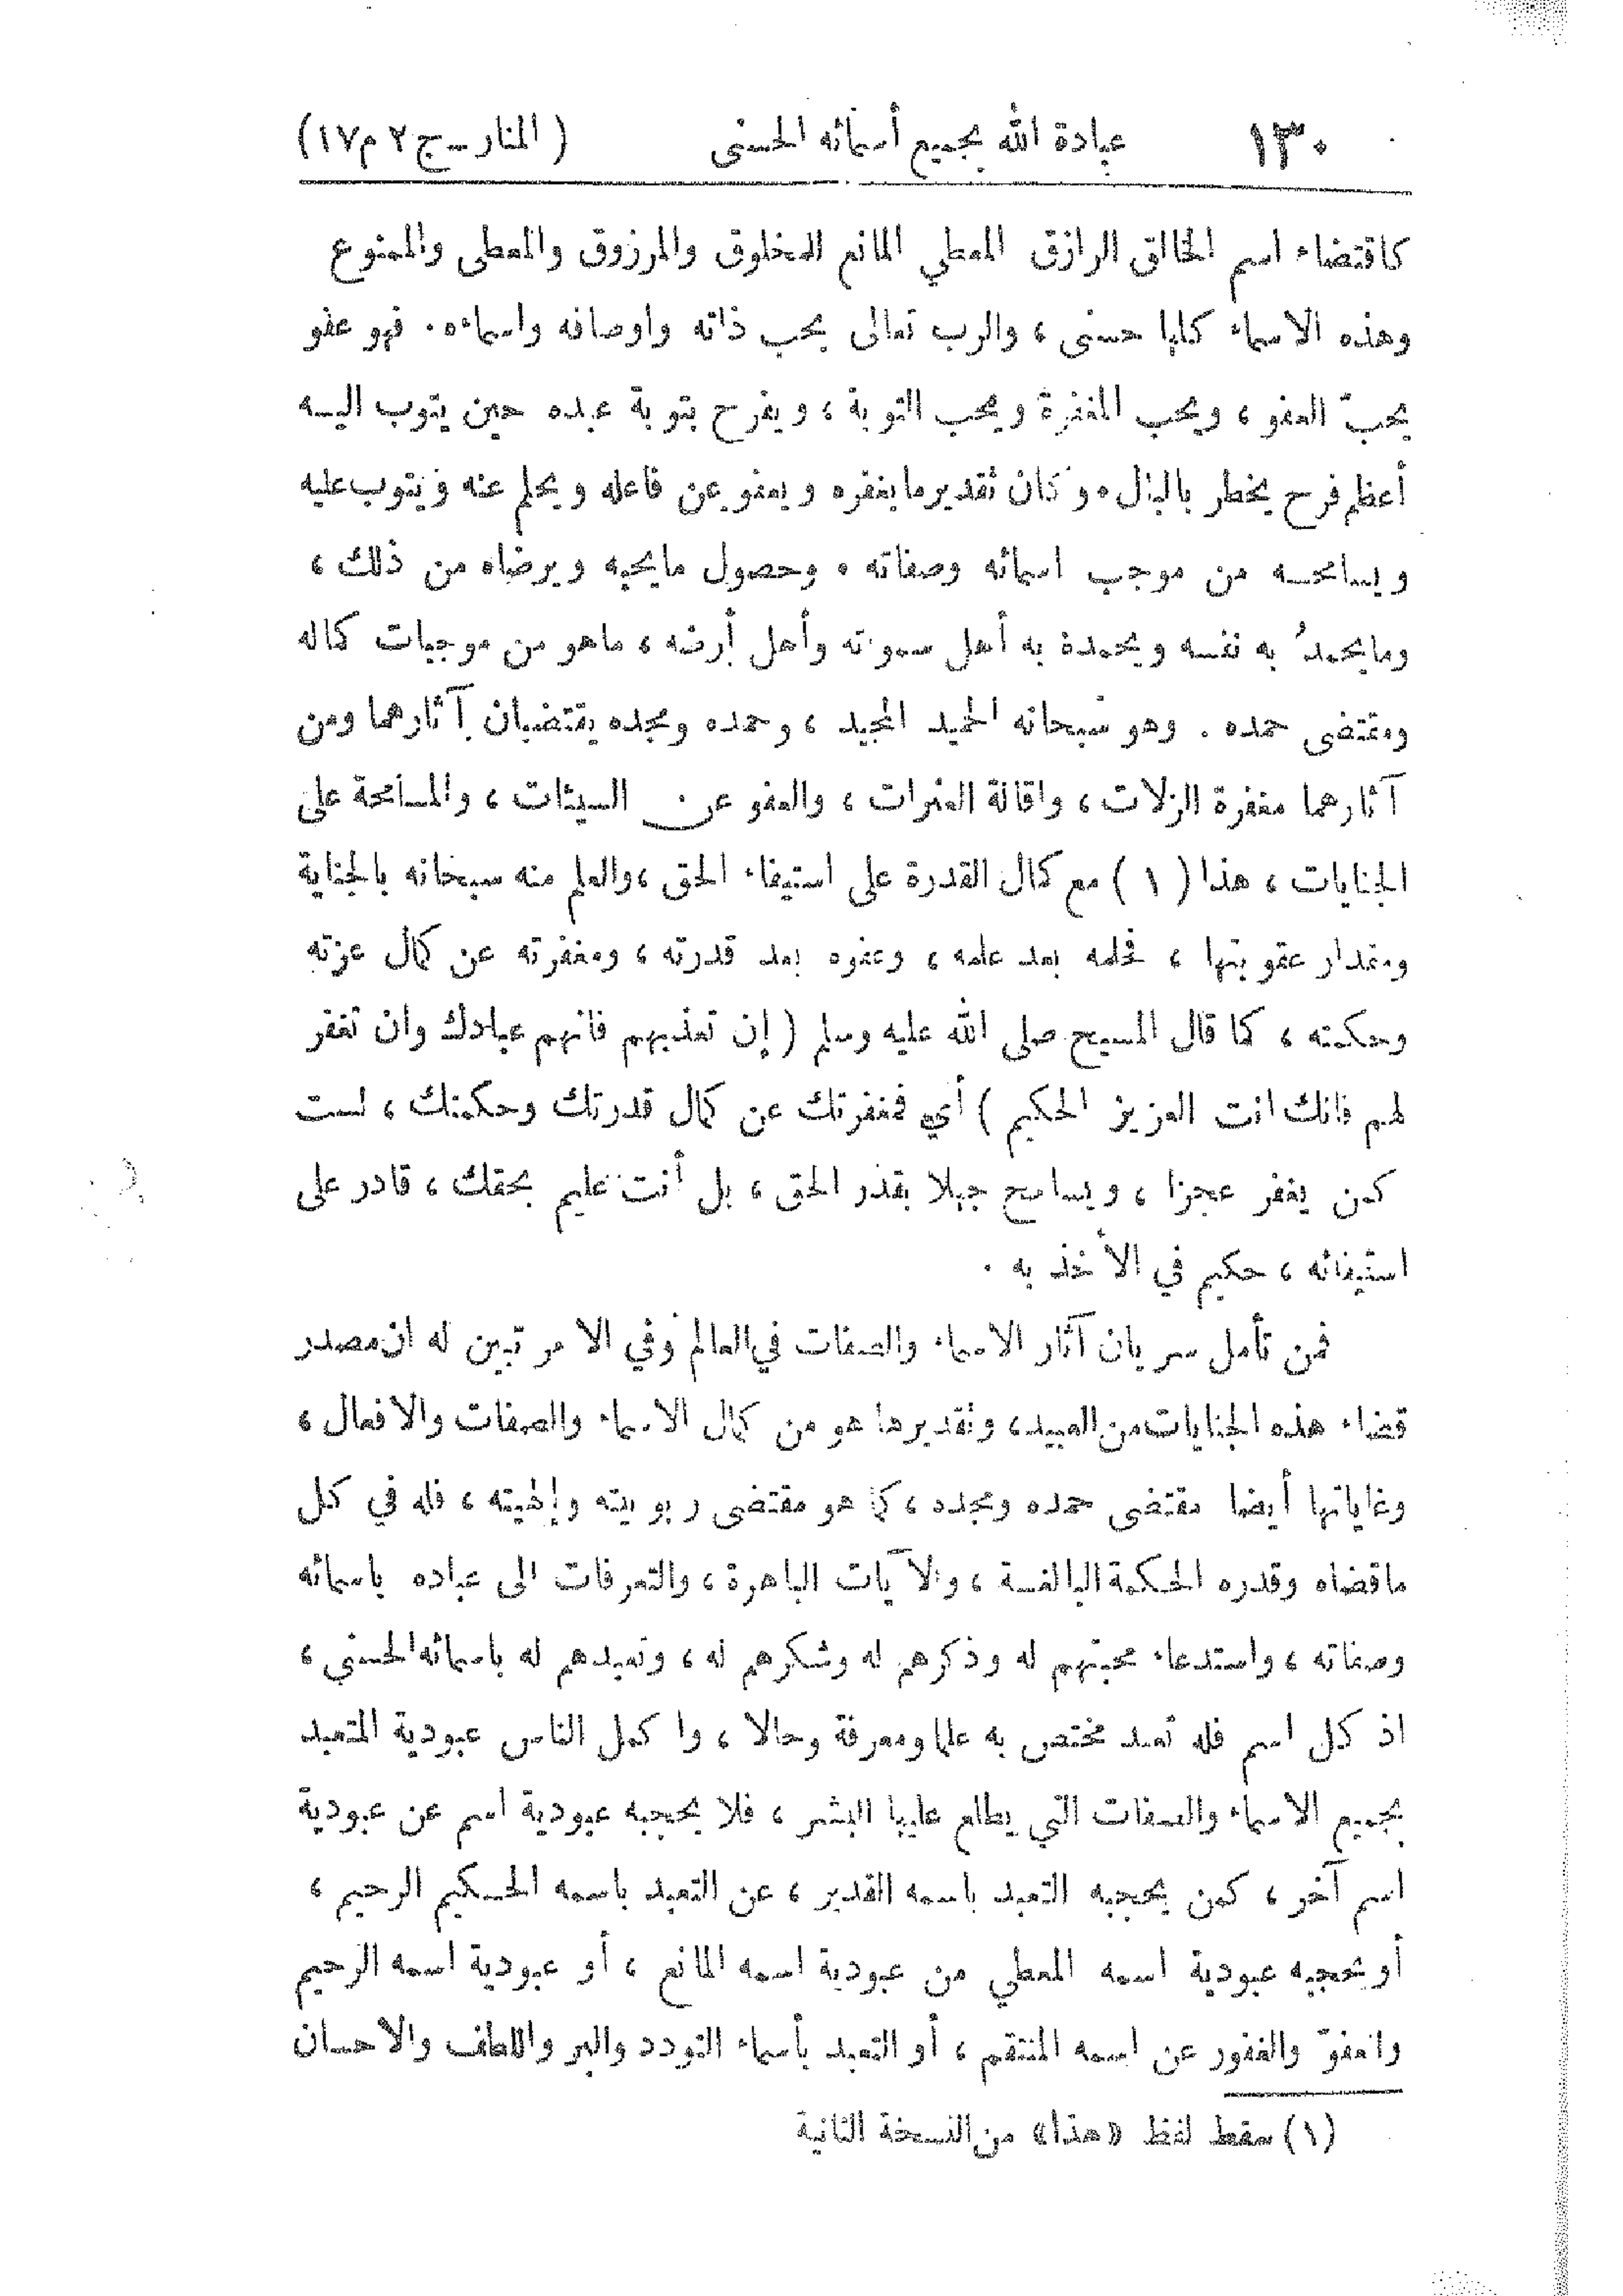 ١٣٠ عبادة الله بجميع أسمائه الحسنى ( المنار ــ ج ٢ م ١٧)
كاقتضاء اسم الخالق الرازق المعطي المانع للمخلوق والمرزوق والمعطى والممنوع
وهذه الاسماء كلها حسنى ، والرب تعالى يحب ذاته واوصافه واسماءه . فهو عفو
يحبّ العفو ، ويحب المغفرة ويحب التوبة ، ويفرح بتوبة عبده حين يتوب اليـه
أعظم فرح يخطر بالبال . وكان تقدير ما يغفره ويعفو عن فاعله ويحلم عنه ويتوب عليه
ويسامحـه من موجب اسمائه وصفاته . وحصول مايحبه ويرضاه من ذلك ،
ومايحمدُ به نفسه ويحمده به أهل سمواته وأهل أرضه ، ماهو من موجبات كماله
ومقتضى حمده . وهو سبحانه الحميد المجيد ، وحمده ومجده يقتضيان آثارهما ومن
آثارهما مغفرة الزلات ، واقالة العثرات ، والعفو عن السيئات ، والمسامحة على
الجنايات ، هذا ( ١ ) مع كمال القدرة على استيفاء الحق ، والعلم منه سبحانه بالجناية
ومقدار عقوبتها ، فحلمه بعد علمه ، وعفوه بعد قدرته ، ومغفرته عن كمال عزته
وحكمته ، كما قال المسيح صلى الله عليه وسلم ( إن تعذبهم فانهم عبادك وان تغفر
لهم فانك انت العزيز الحكيم ) أي فمغفرتك عن كمال قدرتك وحكمتك ، لست
كمن يغفر عجزا ، ويسامح جهلا بقدر الحق ، بل أنت عليم بحقك ، قادر على
استيفائه ، حكيم في الأخذ به .
فمن تأمل سريان آثار الاسماء والصفات في العالم وفي الامر تبين له ان مصدر
قضاء هذه الجنايات من العبيد ، وتقديرها هو من كمال الاسماء والصفات والافعال ،
وغاياتها أيضا مقتضى حمده ومجده ، كما هو مقتضى ربوبيته وإلهيته ، فله في كل
ماقضاه وقدره الحكمة البالغـة ، والآيات الباهرة ، والتعرفات الى عباده باسمائه
وصفاته ، واستدعاء محبتهم له وذكرهم له وشكرهم له ، وتعبدهم له باسمائه الحسنى ،
اذ كل اسم فله تعبد مختص به علما ومعرفة وحالا ، وا كمل الناس عبودية المتعبد
بجميع الاسماء والصفات التي يطلع عليها البشر ، فلا يحجبه عبودية اسم عن عبودية
اسم آخر ، كمن يحجبه التعبد باسمه القدير ، عن التعبد باسمه الحـكيم الرحيم ،
أو يحجبه عبودية اسمه المعطي من عبودية اسمه المانع ، أو عبودية اسمه الرحيم
والعفوّ والغفور عن اسمه المنتقم ، أو التعبد بأسماء التودد والبر واللطف والاحسان
(١) سقط لفظ «هذا» من النسخة الثانية